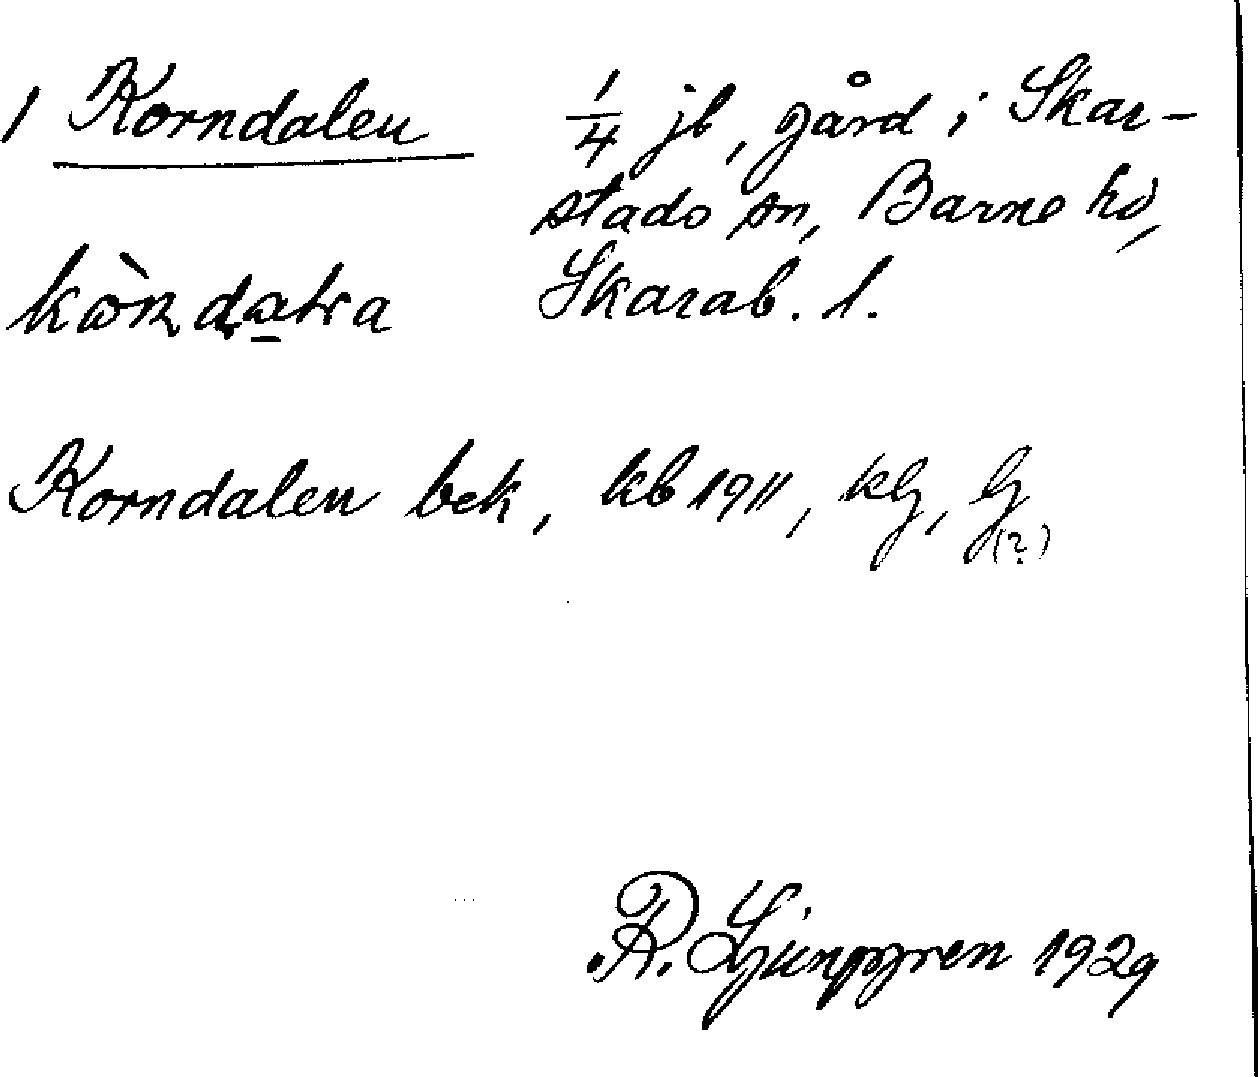 1 Korndalen
1/4 jb, gård i Skar-
stads sn, Barne hd,
Skarab. l.
Korndalen bek, kb 1911, kg, G
(?)
R. Ljunggren 1929